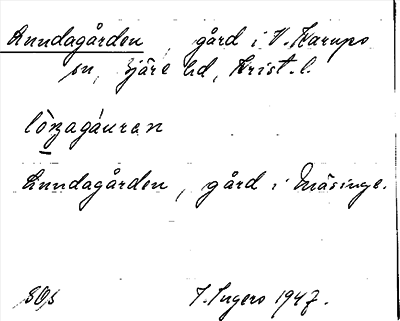 Lundagården, gård i V. Karups
sn, Bjäre hd, Krist. l.
lòn̲agáuran
Lundagården, gård i Mäsinge.
I. Ingers 1947.